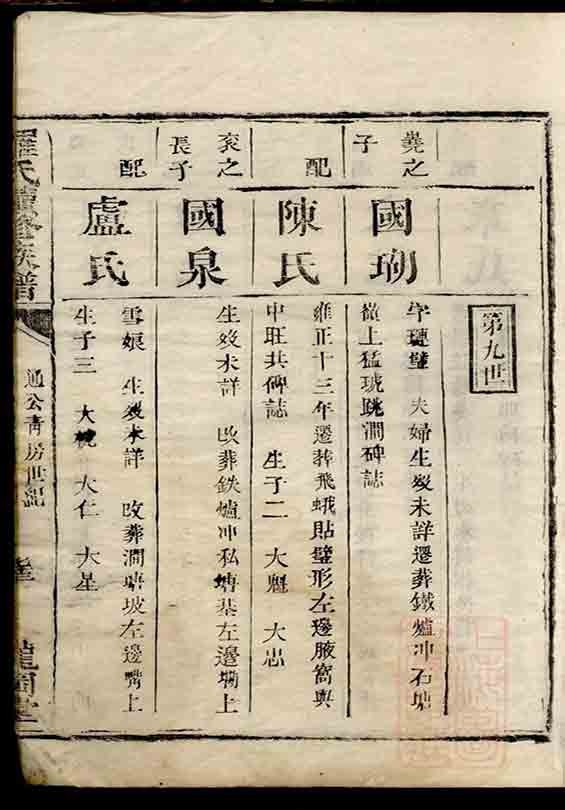 第九世
堯之子
國
字璉璧 夫婦生殁未詳遷葬鐵爐冲石塘
嶺上猛琥跳澗碑誌
配
陳氏
雍正十三年遷葬飛蛾貼璧形左邊腋窩與
中旺共碑誌 生子二 大魁 大忠
袞之長子
國泉
生殁未詳 改葬鉄爐冲私塘基左邊墈上
配
盧氏
雪娘 生殁未詳 改葬澗塘坡左邊嘴上
生子三 大 大仁 大星
羅氏續修族譜
通公青房世紀